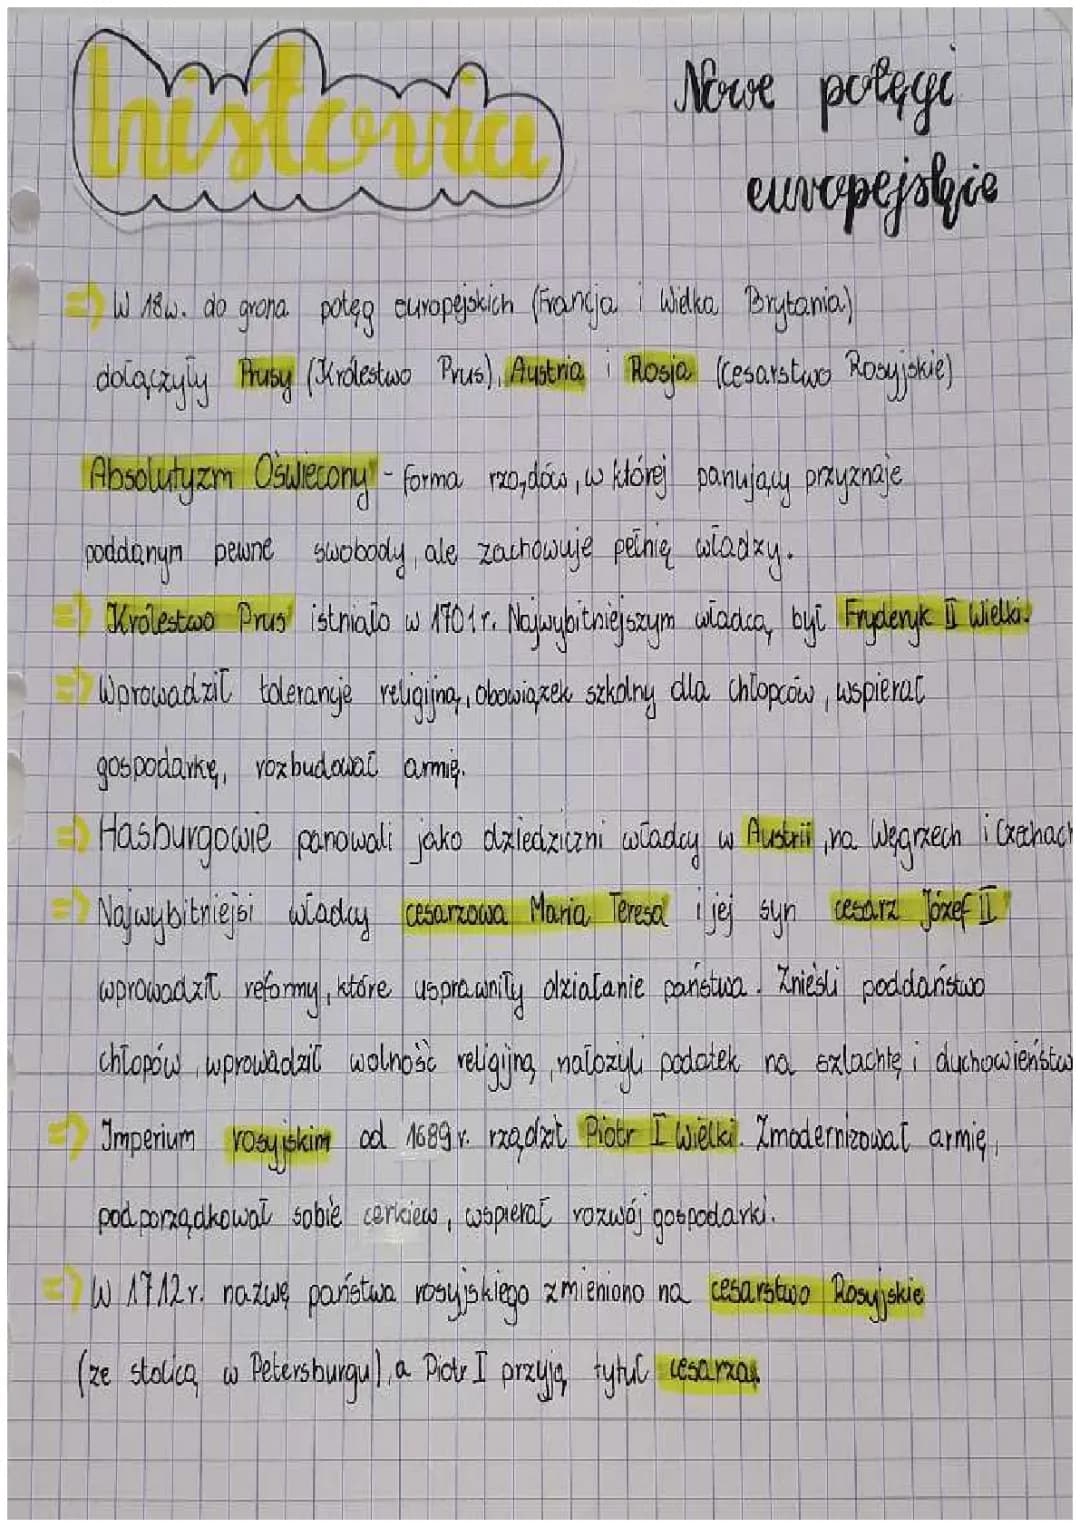 historia
Nowe potęgi
europejskie
=> W 18w. do grona potęg europejskich (Francja i Wielka Brytania)
dołączyły Prusy (Królestwo Prus), Austria i Rosja (cesarstwo Rosyjskie)
Absolutyzm Oświecony - forma rządów, w której panujący przyznaje
poddanym pewne swobody, ale zachowuje pełnię władzy.
=> Królestwo Prus istniało w 1701r. Najwybitniejszym władcą był Fryderyk II Wielki.
=> Wprowadził tolerancję religijną, obowiązek szkolny dla chłopców, wspierał
gospodarkę, rozbudował armię.
=> Hasburgowie panowali jako dziedziczni władcy w Austrii, na Węgrzech i Czechach
=> Najwybitniejsi władcy cesarzowa Maria Teresa i jej syn cesarz Józef II
wprowadził reformy, które usprawniły działanie państwa. Znieśli poddaństwo
chłopów, wprowadził wolność religijną, nałożyli podatek na szlachtę i duchowieństw
=> Imperium rosyjskim od 1689r. rządził Piotr I Wielki. Zmodernizował armię,
podporządkował sobie cerkiew, wspierał rozwój gospodarki.
=> W 1712r. nazwę państwa rosyjskiego zmieniono na cesarstwo Rosyjskie
(ze stolicą w Petersburgu), a Piotr I przyją tytuł cesarza.